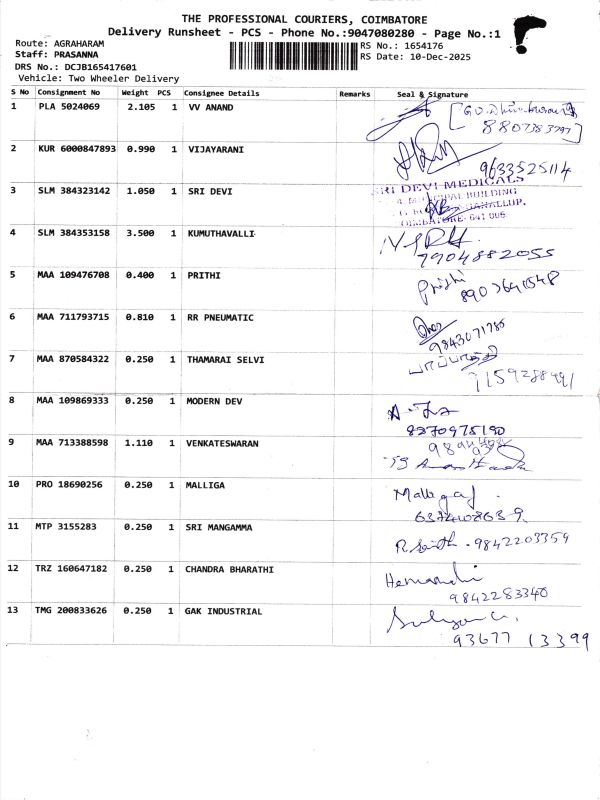 THE PROFESSIONAL COURIERS, COIMBATORE
Delivery Runsheet - PCS - Phone No.:9047080280 - Page No.:1
Route: AGRAHARAM
RS No.: 1654176
Staff: PRASANNA
RS Date: 10-Dec-2025
DRS No.: DCJB165417601
Vehicle: Two Wheeler Delivery
S No Consignment No Weight PCS Consignee Details Remarks Seal & Signature
1 PLA 5024069 2.105 1 VV ANAND
2 KUR 6000847893 0.990 1 VIJAYARANI
9633525114
3 SLM 384323142 1.050 1 SRI DEVI
SRI DEVI MEDICALS
4 SLM 384353158 3.500 1 KUMUTHAVALLI
7904882055
5 MAA 109476708 0.400 1 PRITHI Prithi
8907641548
6 MAA 711793715 0.810 1 RR PNEUMATIC
9843071785
7 MAA 870584322 0.250 1 THAMARAI SELVI
8 MAA 109869333 0.250 1 MODERN DEV
8270975190
9 MAA 713388598 1.110 1 VENKATESWARAN
10 PRO 18690256 0.250 1 MALLIGA Malligaf
6374408639
11 MTP 3155283 0.250 1 SRI MANGAMMA
9842203359
12 TRZ 160647182 0.250 1 CHANDRA BHARATHI
9842283340
13 TMG 200833626 0.250 1 GAK INDUSTRIAL
93677 13399